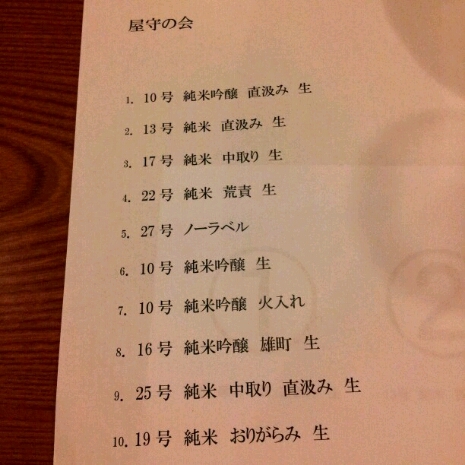 屋守の会
1. 10号 純米吟醸 直汲み 生
2. 13号 純米 直汲み 生
3. 17号 純米 中取り 生
4. 22号 純米 荒責 生
5. 27号 ノーラベル
6. 10号 純米吟醸 生
7. 10号 純米吟醸 火入れ
8. 16号 純米吟醸 雄町 生
9. 25号 純米 中取り 直汲み 生
10. 19号 純米 おりがらみ 生
① ②